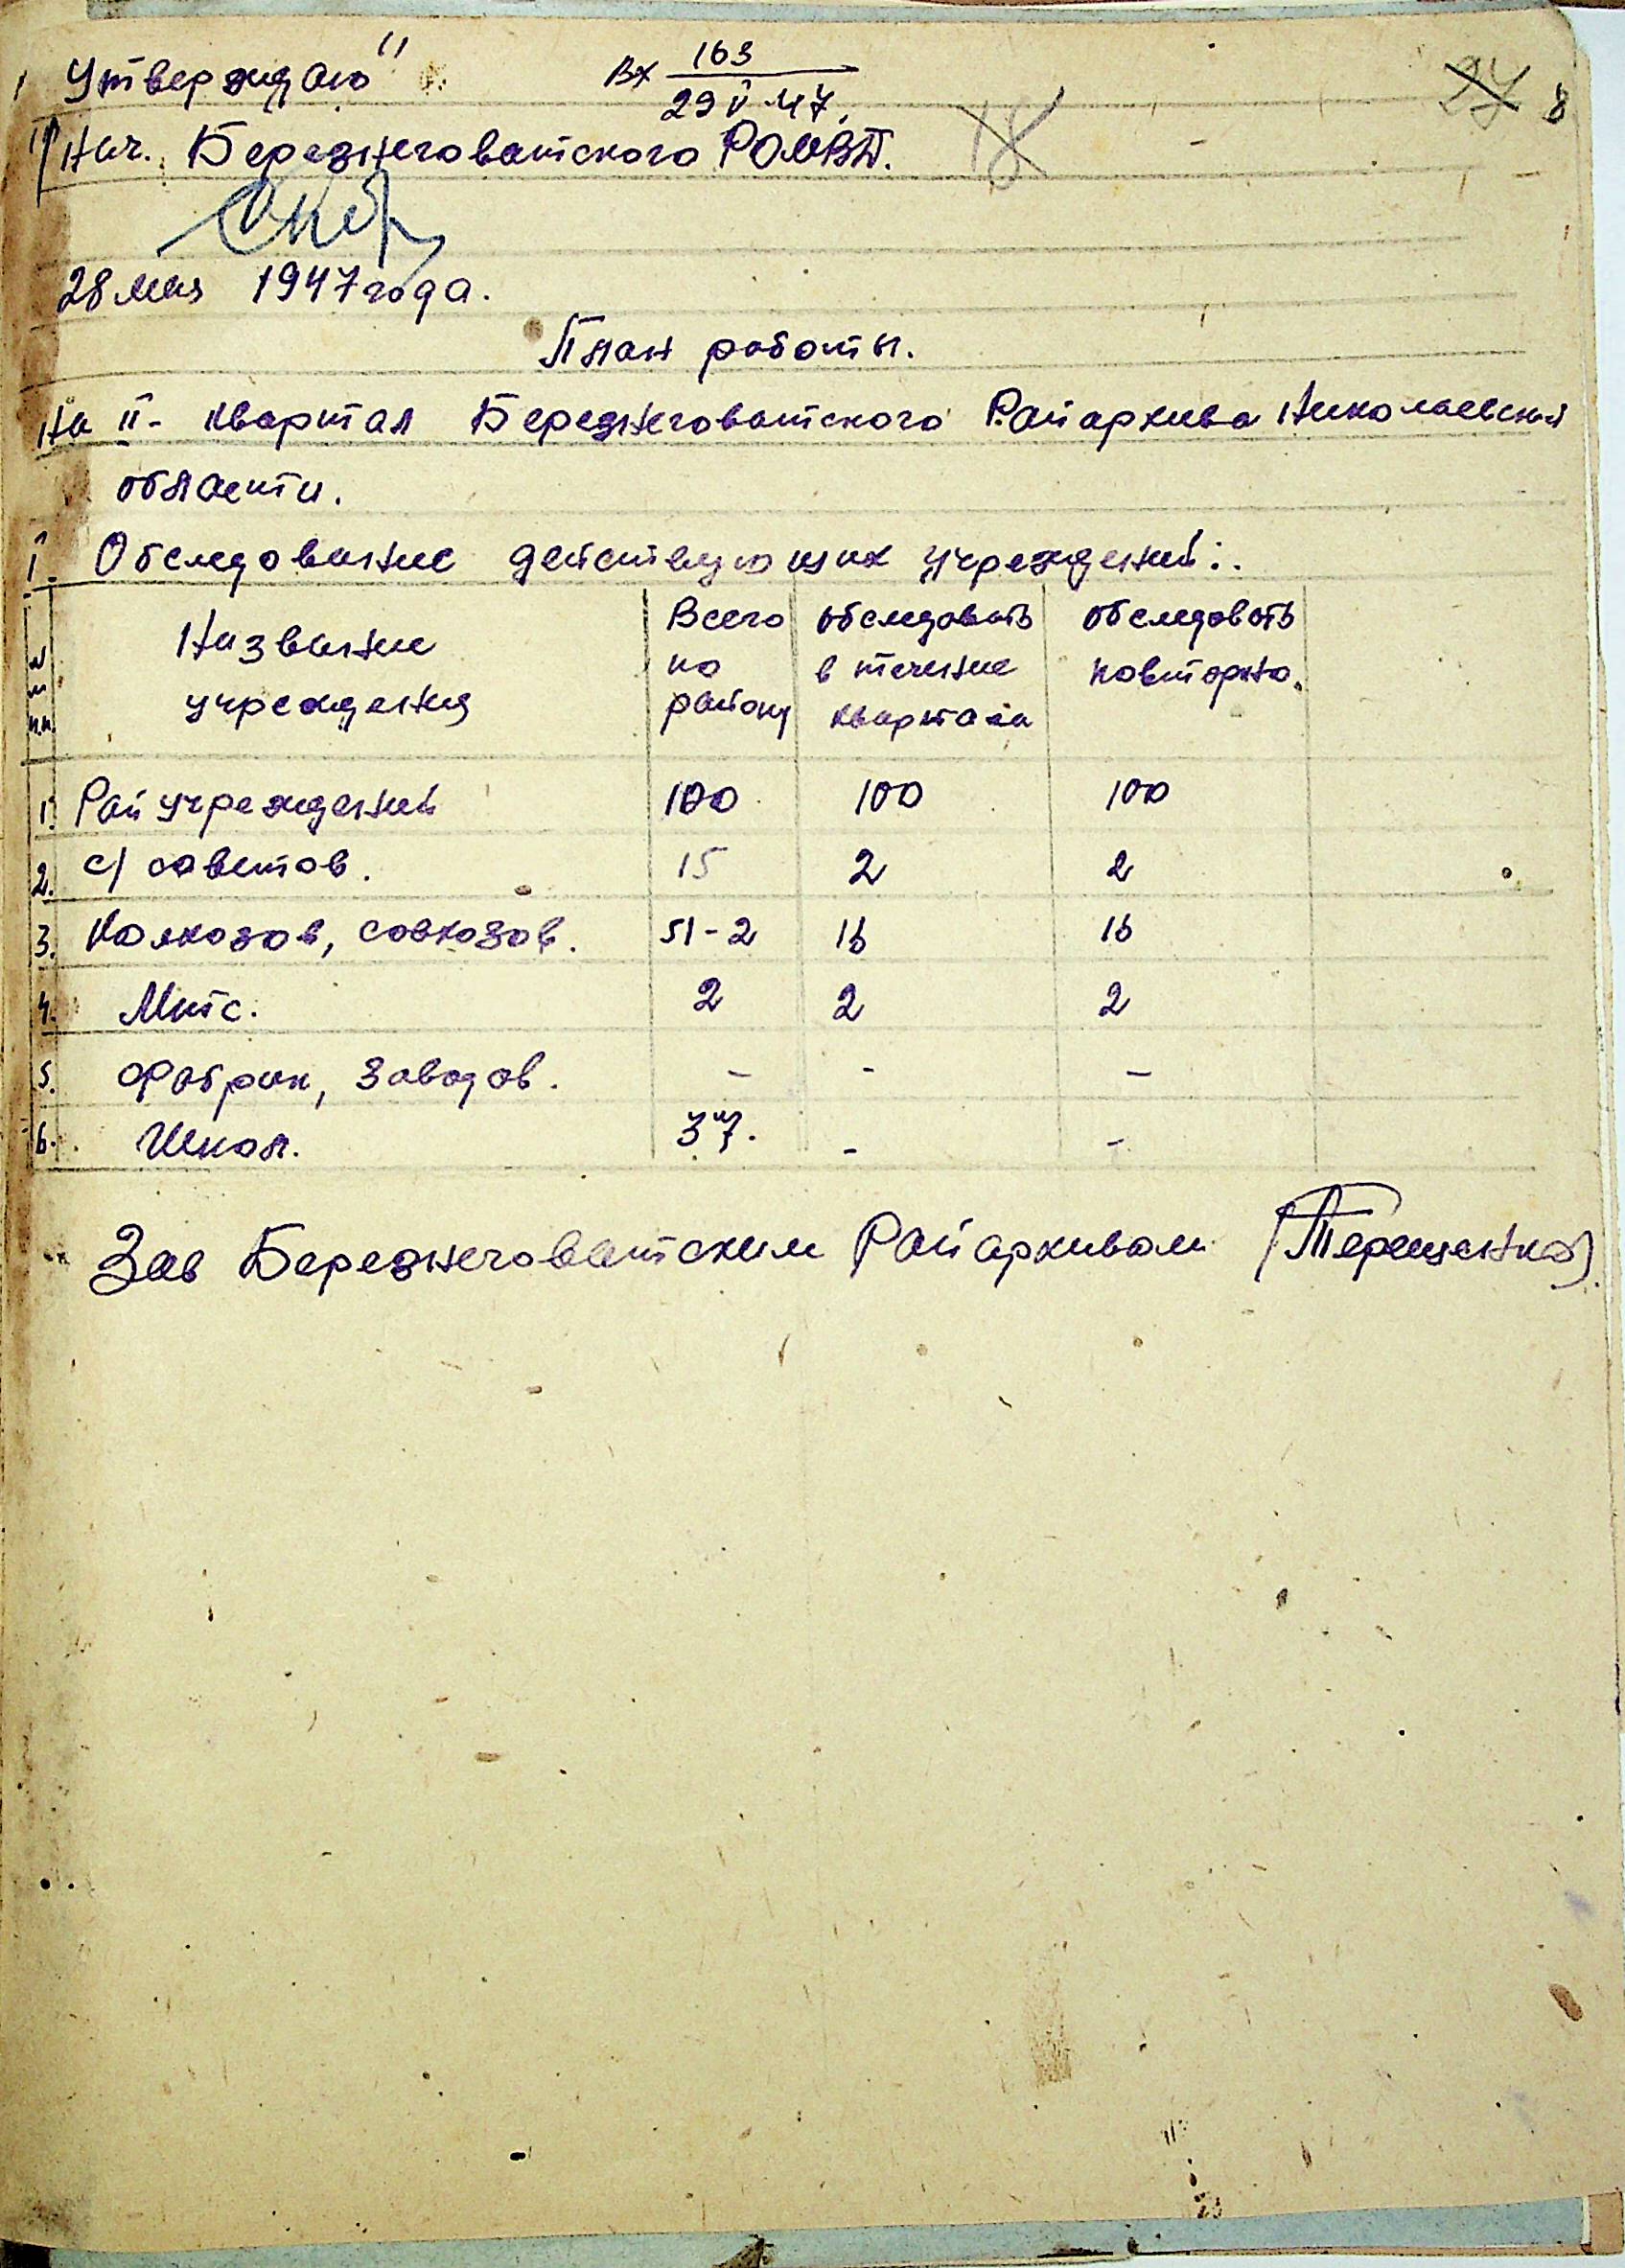 "Утверждаю" Вх 163
29 V 47. 27 8
Нач. Березнеговатского РОМВД. 18
28 мая 1947 года.
План работы.
На II- квартал Березнеговатского Райархива Николаевской
области.
I. Обследование действующих учреждений:.
№ п.п. Название учреждения Всего по району обследовать в течение квартала обследовать повторно.
1. Райучреждений 100 100 100
2. с/советов. 15 2 2
3. Колхозов, совхозов. 51-2 16 16
4. Мтс. 2 2 2
5. Фабрик, заводов. - - -
6. Школ. 37. - -
Зав Березнеговатским Райархивом (Терещенко).